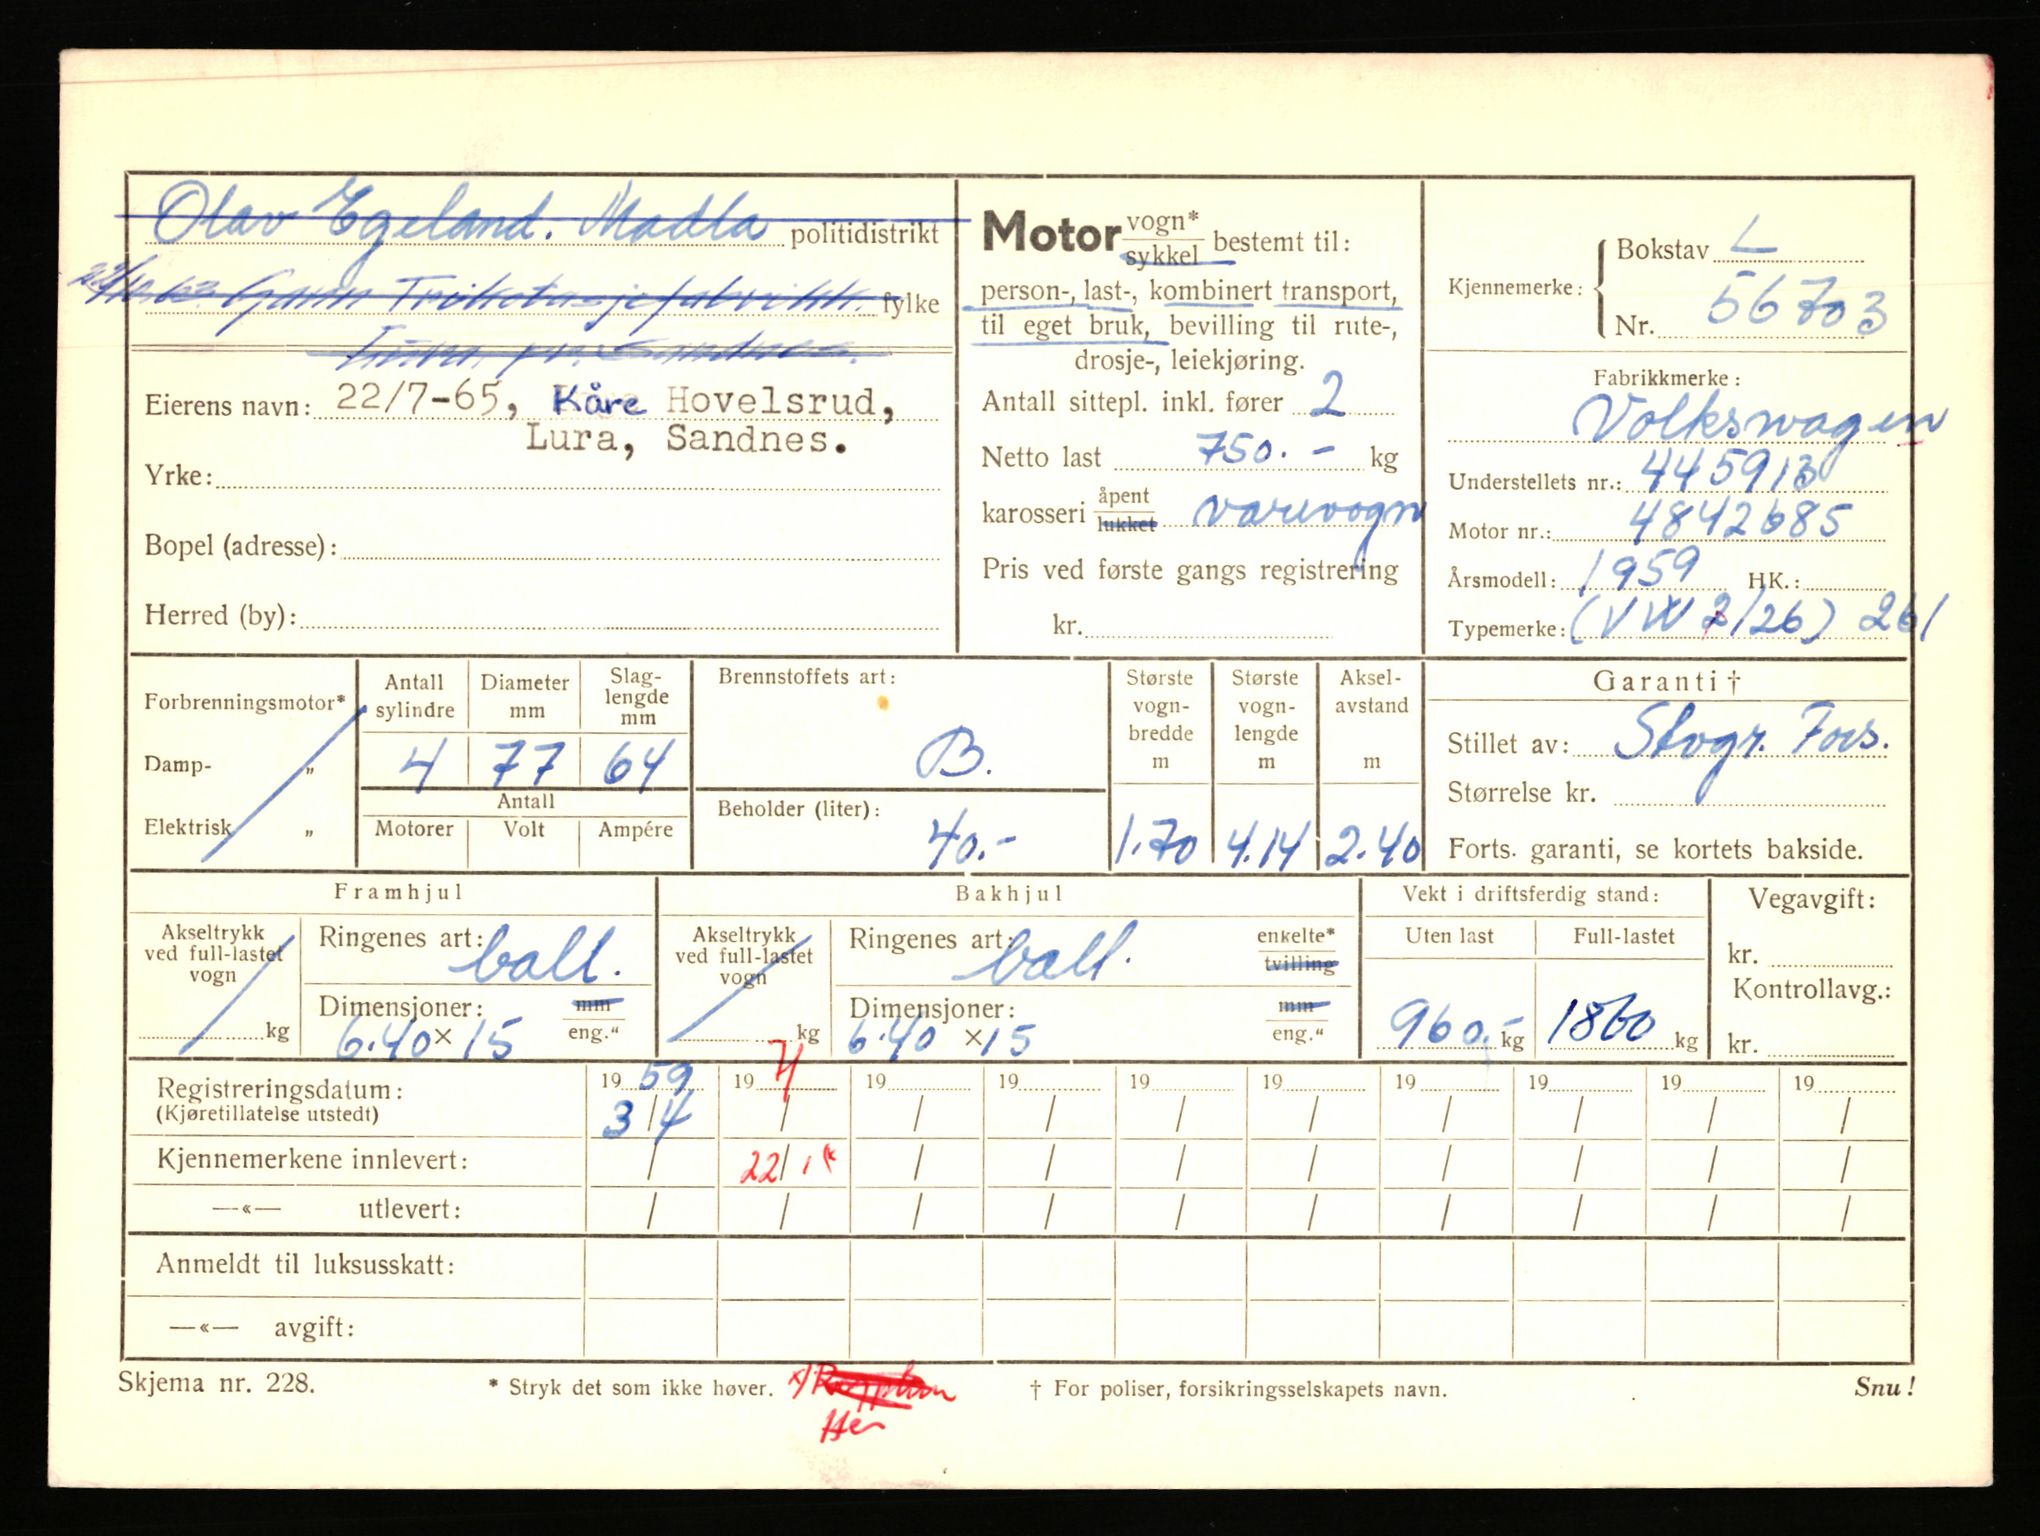 Olav Egeland. Madla politidistrikt
Trikotasjefabrikk. fylke
Eierens navn: 22/7-65, Kåre Hovelsrud,
Lura, Sandnes.
Yrke:
Bopel (adresse):
Herred (by):
Motor vogn* sykkel bestemt til:
person-, last-, kombinert transport,
til eget bruk, bevilling til rute-,
drosje-, leiekjøring.
Antall sittepl. inkl. fører 2
Netto last 750.- kg
karosseri åpent lukket varevogn
Pris ved første gangs registrering
kr.
Kjennemerke:
Bokstav L
Nr. 56703
Fabrikkmerke:
Volkswagen
Understellets nr.: 445913
Motor nr.: 4842685
Årsmodell: 1959 HK.:
Typemerke: (VW 2/26) 261
Forbrenningsmotor*
Damp- „
Elektrisk „
Antall sylindre
Diameter mm
Slag-lengde mm
4 77 64
Antall
Motorer Volt Ampére
Brennstoffets art:
B.
Beholder (liter):
40.-
Største vogn-bredde m
1.70
Største vogn-lengde m
4.14
Aksel-avstand m
2.40
Garanti †
Stillet av: Stvgr. Fors.
Størrelse kr.
Forts. garanti, se kortets bakside.
Framhjul
Akseltrykk ved full-lastet vogn
kg
Ringenes art: ball.
Dimensjoner: mm eng.“
6.40 × 15
Bakhjul
Akseltrykk ved full-lastet vogn
kg
Ringenes art: ball. enkelte* tvilling
Dimensjoner: mm eng.“
6.40 × 15
Vekt i driftsferdig stand:
Uten last Full-lastet
960.- kg 1860 kg
Vegavgift:
kr.
Kontrollavg.:
kr.
Registreringsdatum: 19 59 19 19 19 19 19 19 19 19 19
(Kjøretillatelse utstedt) 3/4 / / / / / / / / /
Kjennemerkene innlevert: / 22/1 / / / / / / / /
—«— utlevert: / / / / / / / / / /
Anmeldt til luksusskatt:
—«— avgift:
Skjema nr. 228.
* Stryk det som ikke høver.
† For poliser, forsikringsselskapets navn.
Snu!
Her